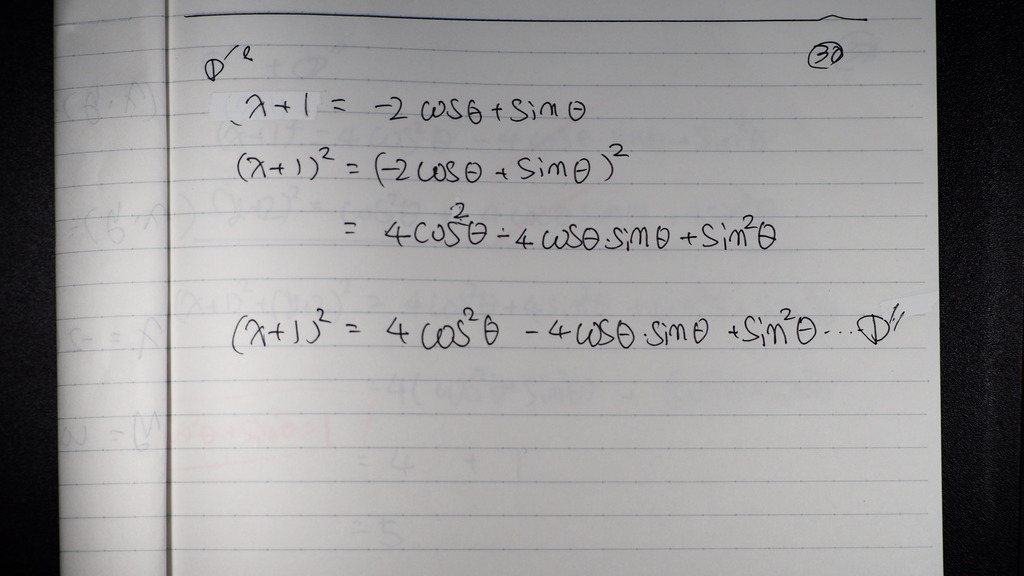 ①'² ㉚
x+1 = -2 cosθ + sinθ
(x+1)² = (-2cosθ + sinθ)²
= 4cos²θ - 4cosθ·sinθ + sin²θ
(x+1)² = 4cos²θ - 4cosθ·sinθ + sin²θ ... ①''